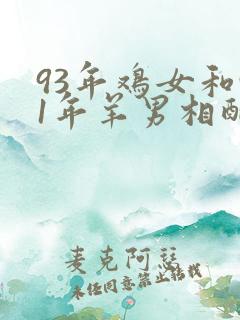 93年鸡女和
1年羊男相配
麦克阿瑟
未经同意禁止转载